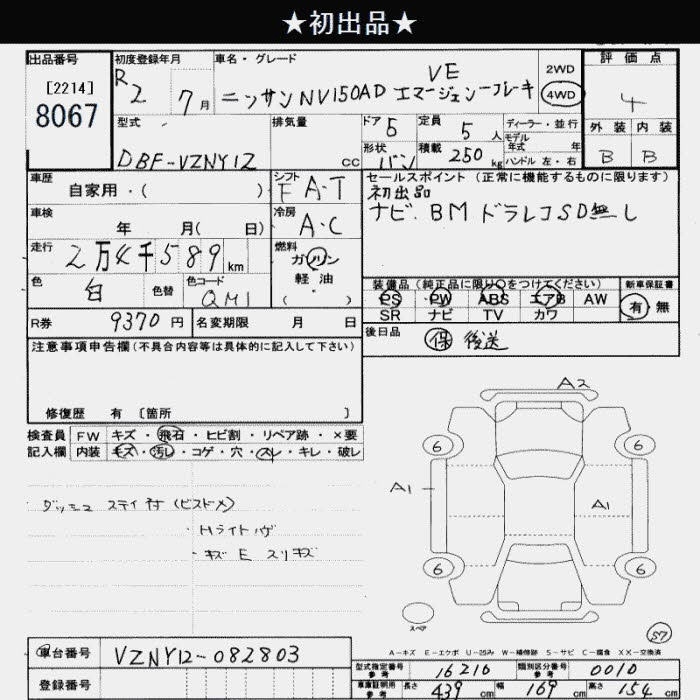 ★初出品★
出品番号 初度登録年月 車名・グレード 評価点
[2214]
8067
R2 7月 ニッサンNV150AD エマージェンシーブレーキ
VE
2WD
4WD
4
外装 内装
B B
型式 排気量 ドア 5 定員 5人 ディーラー・並行
モデル年式 年
DBF-VZNY12 cc 形状 バン 積載 250kg ハンドル 左・右
車歴 シフト セールスポイント (正常に機能するものに限ります)
自家用・( ) FA・T
初出品
ナビ. BM ドラレコSD無し
車検 冷房
年 月( 日) A・C
走行 燃料
2万4千589km ガソリン
軽油
( ・ )
色 色替 色コード
白 QM1
装備品 (純正品に限り○をつけてください) 新車保証書
PS PW ABS エアB AW 有・無
SR ナビ TV カワ
R券 9370円 名変期限 月 日
後日品 保 後送
注意事項申告欄 (不具合内容等は具体的に記入して下さい)
修復歴 有 〔箇所 〕
検査員 FW キズ・飛石・ヒビ割・リペア跡・×要
記入欄 内装 キズ・汚レ・コゲ・穴・スレ・キレ・破レ
ダッシュ ステイ付(ビスドメ)
・Hライトハゲ
・キズ E スリキズ
A2
6 6
A1 A1
6 6
スペア
57
A-キズ E-エクボ U-凹み W-補修跡 S-サビ C-腐食 XX-交換済
車台番号 VZNY12-082803
登録番号
型式指定番号 参考 16216 類別区分番号 参考 0010
車庫証明用 参考 長さ 439cm 幅 169cm 高さ 154cm